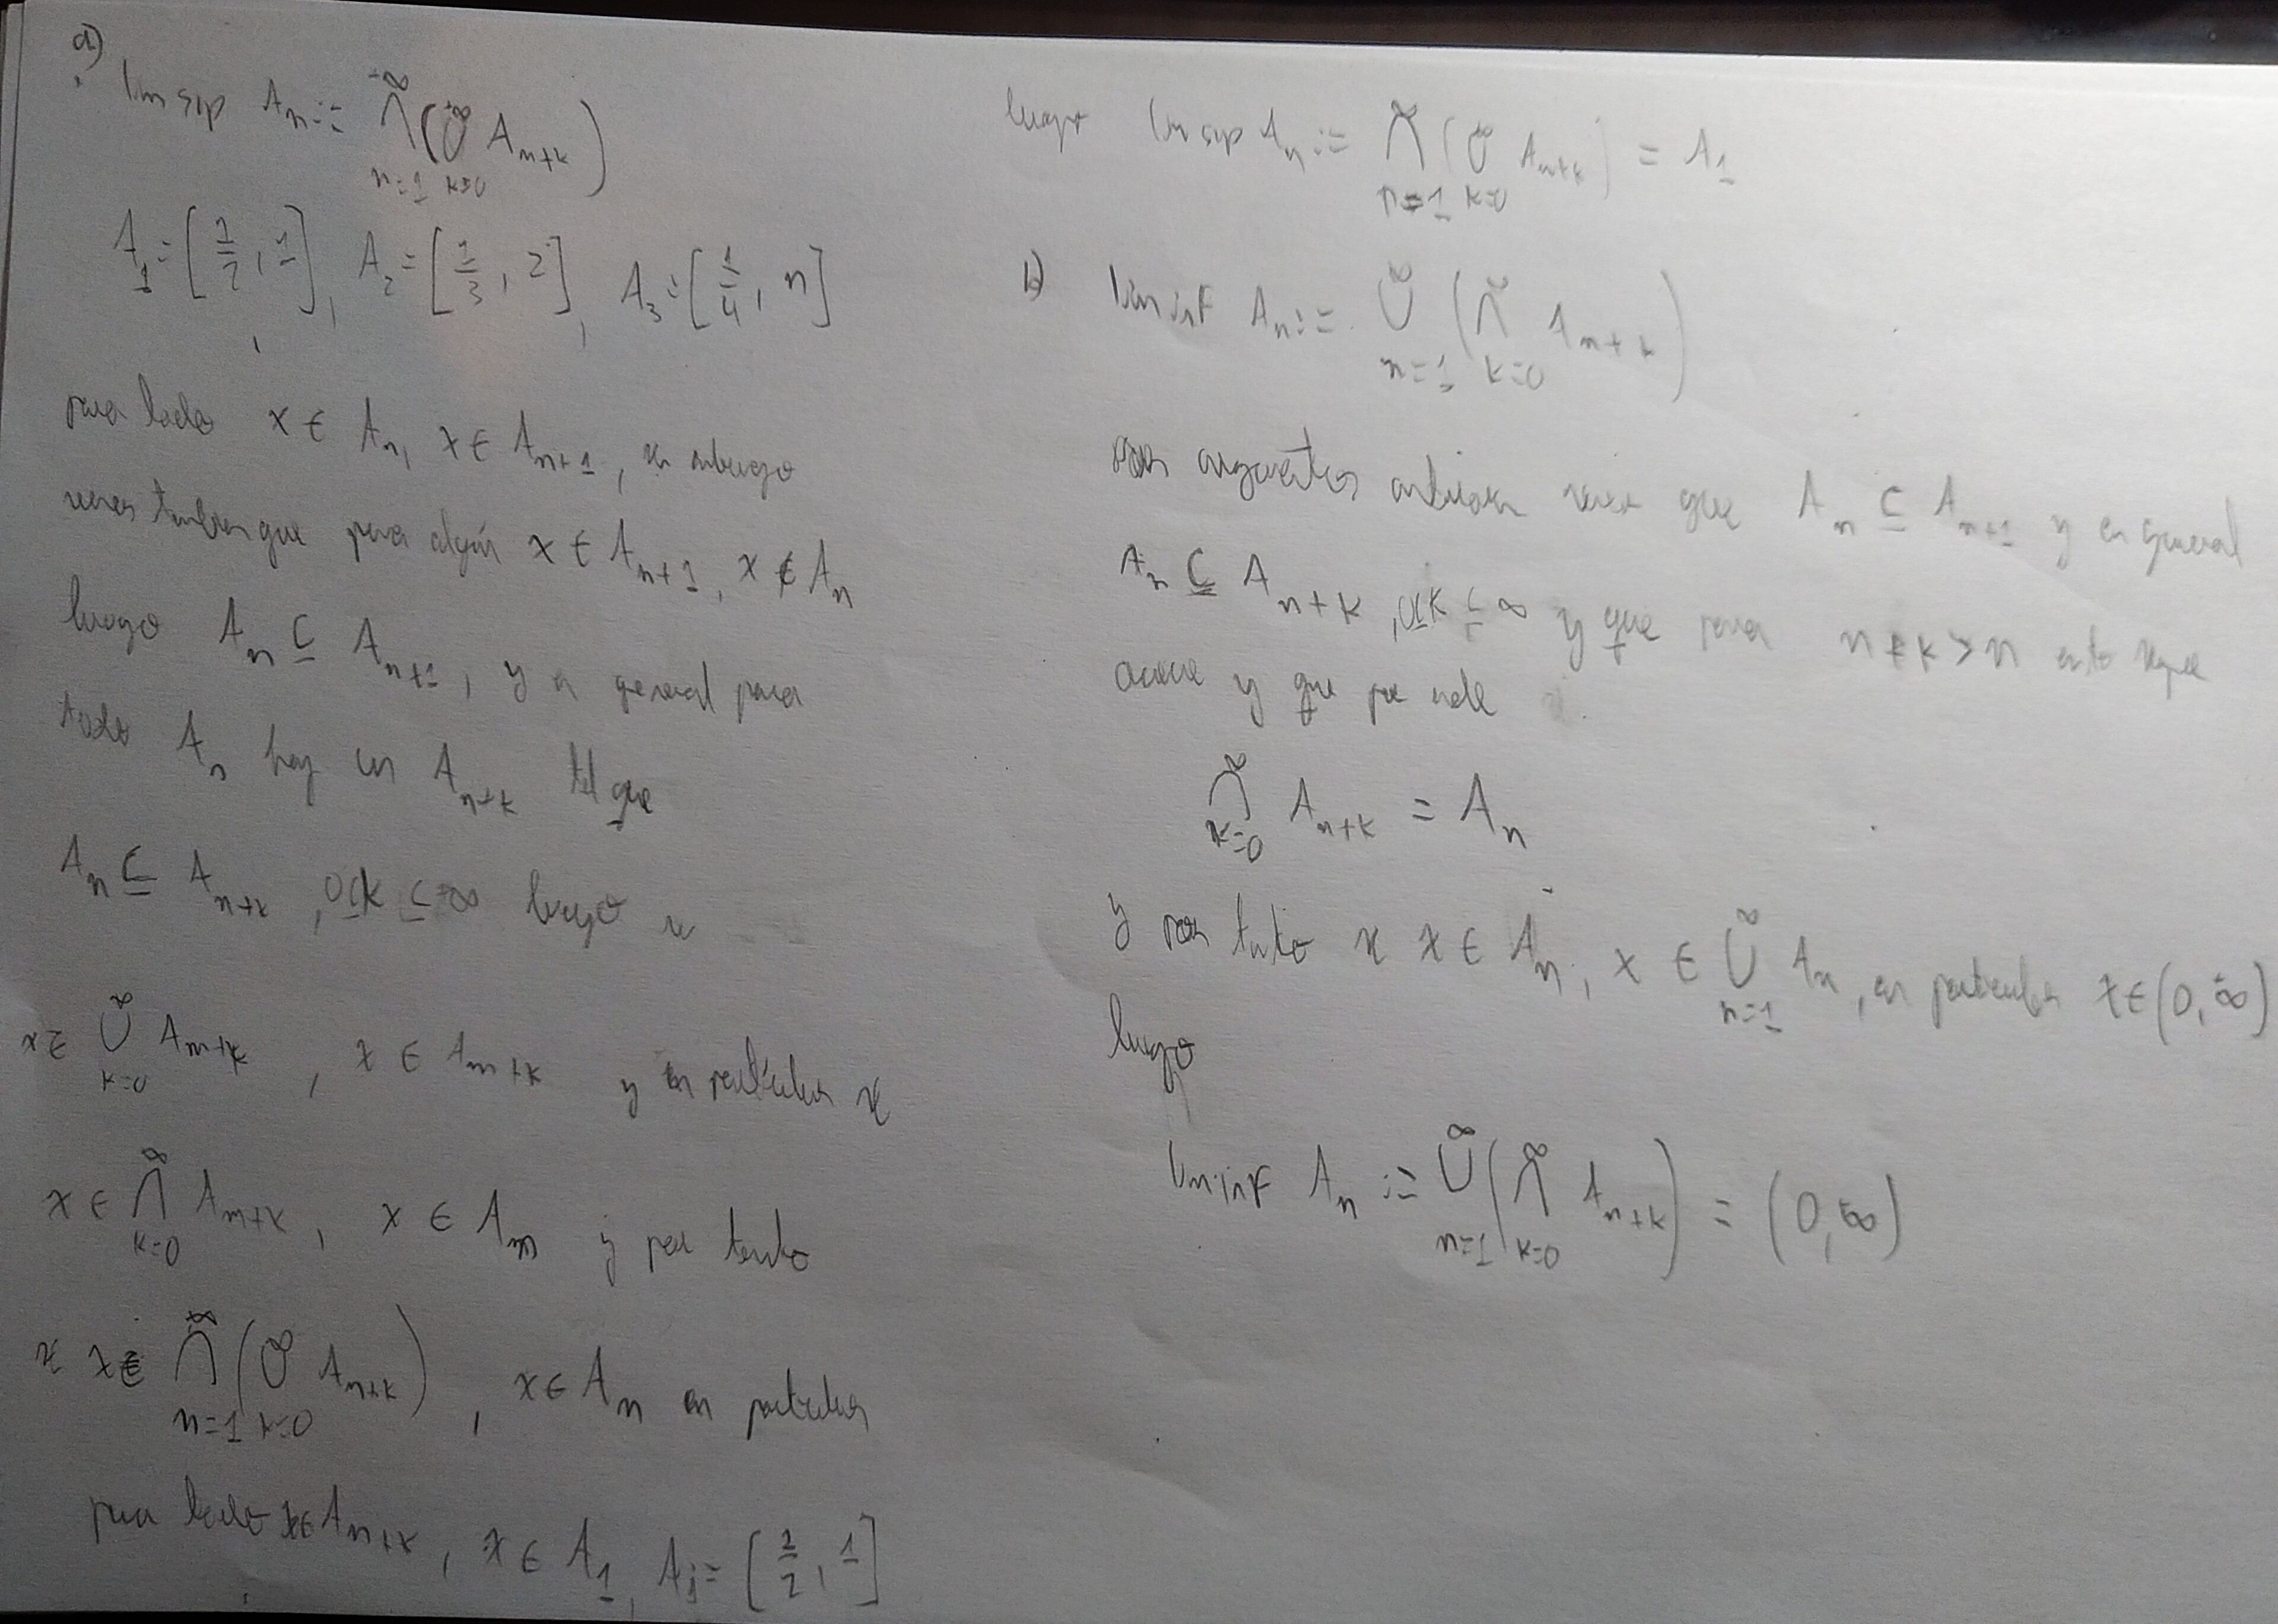 a)
lim sup An := ∞⋂n=1 (+∞⋃k=0 An+k)
A1=[1/2,1], A2=[1/3,2], A3=[1/4,n]
para todo x ∈ An, x ∈ An+1, sin embargo
vemos tambien que para algún x ∈ An+1, x ∉ An
luego An ⊆ An+1, y en general para
todo An hay un An+k tal que
An ⊆ An+k, 0≤k≤+∞ luego si
x∈ ∞⋃k=0 Am+k, x ∈ Am+k y en particular si
x ∈ ∞⋂k=0 Am+k, x ∈ Am y por tanto
si x∈ +∞⋂n=1 (∞⋃k=0 An+k), x∈An en particular
para todo x∈An+k, x∈A1, A1=[1/2,1]
luego lim sup An := ∞⋂n=1 (+∞⋃k=0 An+k) = A1
b) lim inf An := ∞⋃n=1 (∞⋂k=0 An+k)
por argumentos anteriores vemos que An ⊆ An+1 y en general
An ⊆ An+k, 0≤k≤∞ y que para n+k>n esto sigue
ocurre y que por ende
∞⋂k=0 An+k = An
y por tanto si x ∈ An, x ∈ ∞⋃n=1 An, en particular x∈(0,+∞)
luego
lim inf An := ∞⋃n=1 (∞⋂k=0 An+k) = (0,+∞)